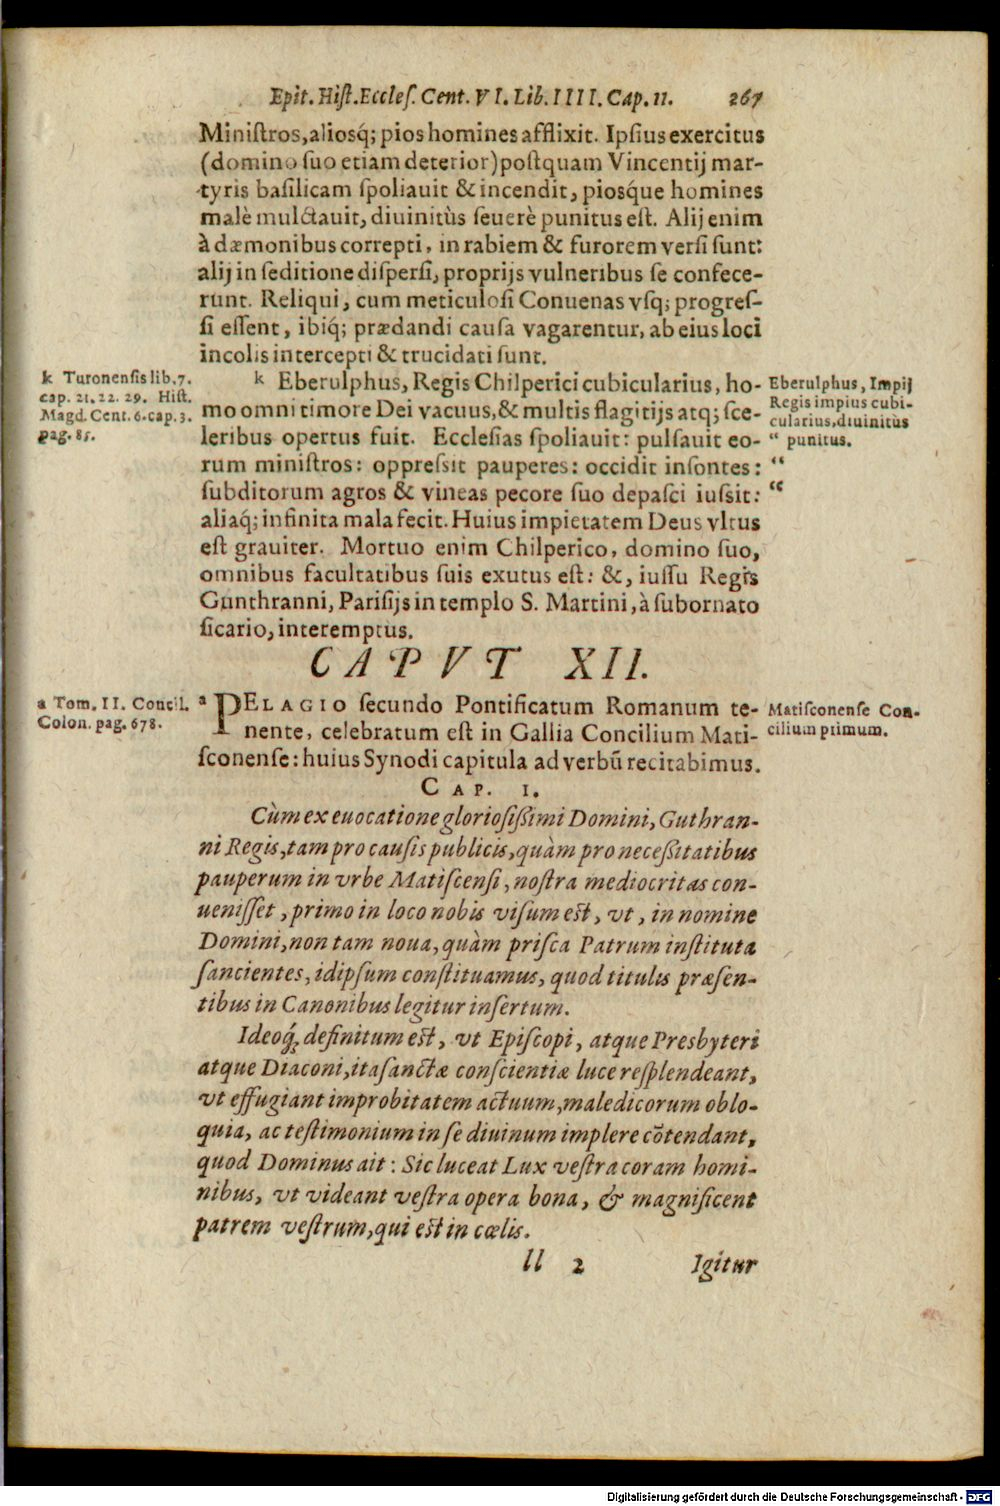 Epit. Hiſt. Eccleſ. Cent. VI. Lib. IIII. Cap. 11. 267
Miniſtros, aliosq́; pios homines afflixit. Ipſius exercitus
(domino ſuo etiam deterior) poſtquam Vincentij mar-
tyris baſilicam ſpoliauit & incendit, piosque homines
malè mulctauit, diuinitùs ſeuerè punitus eſt. Alij enim
à dæmonibus correpti, in rabiem & furorem verſi ſunt:
alij in ſeditione diſperſi, proprijs vulneribus ſe confece-
runt. Reliqui, cum meticuloſi Conuenas vſq; progreſ-
ſi eſſent, ibiq́; prædandi cauſa vagarentur, ab eius loci
incolis intercepti & trucidati ſunt.
k Turonenſis lib. 7.
cap. 21. 22. 29. Hiſt.
Magd. Cent. 6. cap. 3.
pag. 85.
k Eberulphus, Regis Chilperici cubicularius, ho-
mo omni timore Dei vacuus, & multis flagitijs atq; ſce-
leribus opertus fuit. Eccleſias ſpoliauit: pulſauit eo-
rum miniſtros: oppreſsit pauperes: occidit inſontes:
ſubditorum agros & vineas pecore ſuo depaſci iuſsit:
aliaq́; infinita mala fecit. Huius impietatem Deus vltus
eſt grauiter. Mortuo enim Chilperico, domino ſuo,
omnibus facultatibus ſuis exutus eſt: &, iuſſu Regis
Gunthranni, Pariſijs in templo S. Martini, à ſubornato
ſicario, interemptus.
Eberulphus, Impij
Regis impius cubi-
cularius, diuinitùs
“ punitus.
“
“
CAPVT XII.
a Tom. II. Concil.
Colon. pag. 678.
a PELAGIO ſecundo Pontificatum Romanum te-
nente, celebratum eſt in Gallia Concilium Mati-
ſconenſe: huius Synodi capitula ad verbũ recitabimus.
Matiſconenſe Con-
cilium primum.
CAP. I.
Cùm ex euocatione glorioſißimi Domini, Guthran-
ni Regis, tam pro cauſis publicis, quàm pro neceßitatibus
pauperum in vrbe Matiſcenſi, noſtra mediocritas con-
ueniſſet, primo in loco nobis viſum eſt, vt, in nomine
Domini, non tam noua, quàm priſca Patrum inſtituta
ſancientes, idipſum conſtituamus, quod titulis præſen-
tibus in Canonibus legitur inſertum.
Ideoq́; definitum eſt, vt Epiſcopi, atque Presbyteri
atque Diaconi, ita ſanctæ conſcientiæ luce reſplendeant,
vt effugiant improbitatem actuum, maledicorum oblo-
quia, ac teſtimonium in ſe diuinum implere cõtendant,
quod Dominus ait: Sic luceat Lux veſtra coram homi-
nibus, vt videant veſtra opera bona, & magnificent
patrem veſtrum, qui eſt in cœlis.
ll 2 Igitur
Digitalisierung gefördert durch die Deutsche Forschungsgemeinschaft - DFG